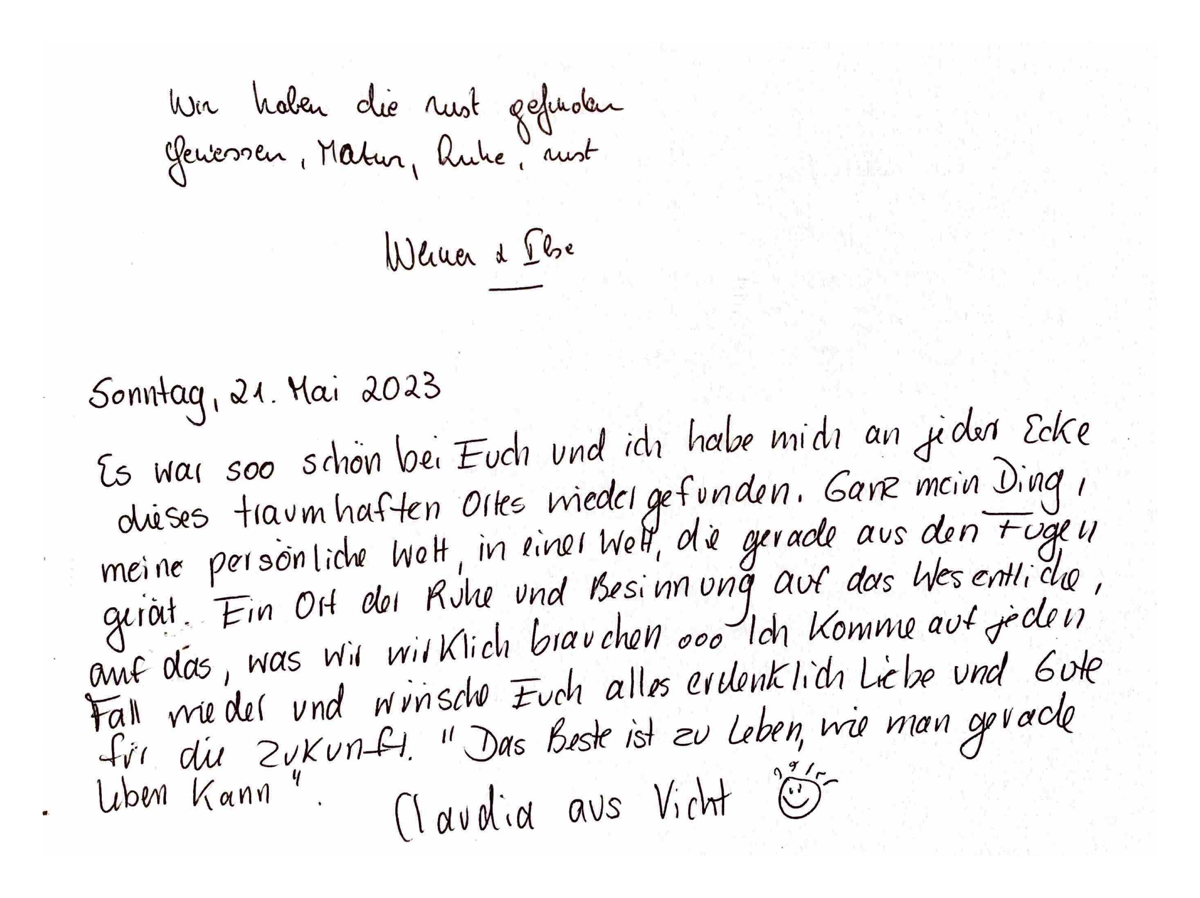 Wir haben die rust gefunden
Genossen, Natur, Ruhe, rust
Werner & Ilse
Sonntag, 21. Mai 2023
Es war soo schön bei Euch und ich habe mich an jeder Ecke
dieses traumhaften Ortes wiedergefunden. Ganz mein Ding,
meine persönliche Welt, in einer Welt, die gerade aus den Fugen
gerät. Ein Ort der Ruhe und Besinnung auf das Wesentliche,
auf das, was wir wirklich brauchen ooo Ich komme auf jeden
Fall wieder und wünsche Euch alles erdenklich Liebe und Gute
für die Zukunft. "Das Beste ist zu leben, wie man gerade
leben kann".
Claudia aus Vicht